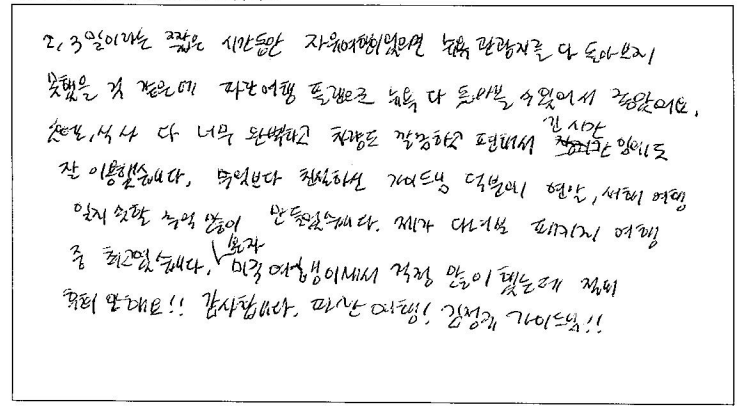 2, 3일이라는 짧은 시간동안 자유여행이었으면 뉴욕 관광지를 다 돌아보지
못했을 것 같은데 파란여행 플랜으로 뉴욕 다 둘러볼 수 있어서 좋았어요.
숙소, 식사 다 너무 완벽하고 차량도 깔끔하고 편해서 긴 시간 임에도
잘 이용했습니다. 무엇보다 친절하신 가이드님 덕분에 현일, 서해 여행
잊지 못할 추억 많이 만들었습니다. 제가 다녀본 패키지 여행
중 최고였습니다. 혼자 미국 여행이어서 걱정 많이 했는데 절대
후회 안해요!! 감사합니다. 파란 여행! 가이드님!!